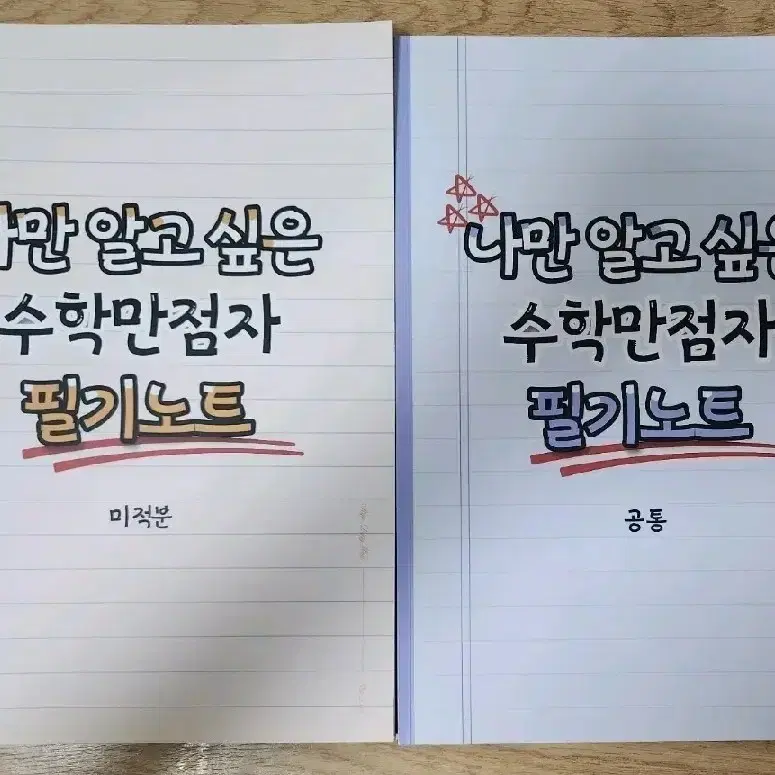 나만 알고 싶은
수학만점자
필기노트
미적분
나만 알고 싶은
수학만점자
필기노트
공통